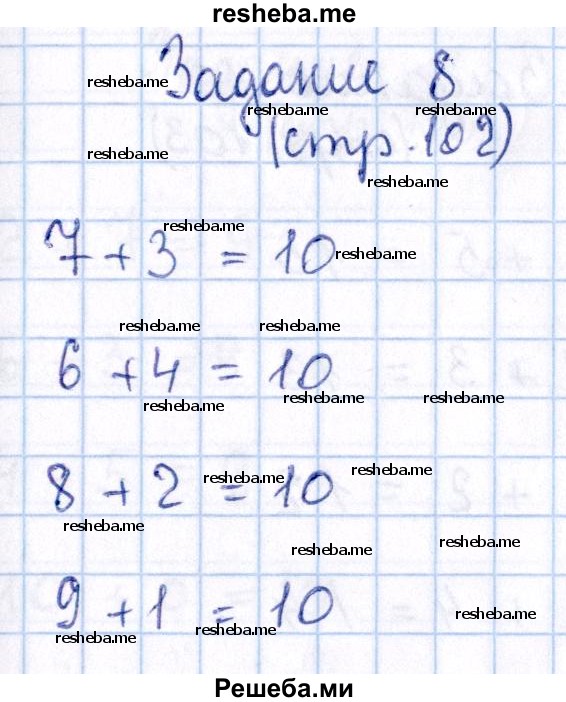 resheba.me
Задание 8
resheba.me
resheba.me resheba.me
(стр. 102)
resheba.me
resheba.me
resheba.me
7 + 3 = 10
resheba.me
resheba.me resheba.me
6 + 4 = 10
resheba.me resheba.me resheba.me
resheba.me
8 + 2 = 10
resheba.me
resheba.me
resheba.me
resheba.me
9 + 1 = 10
resheba.me
resheba.me
resheba.me
Решеба.ми